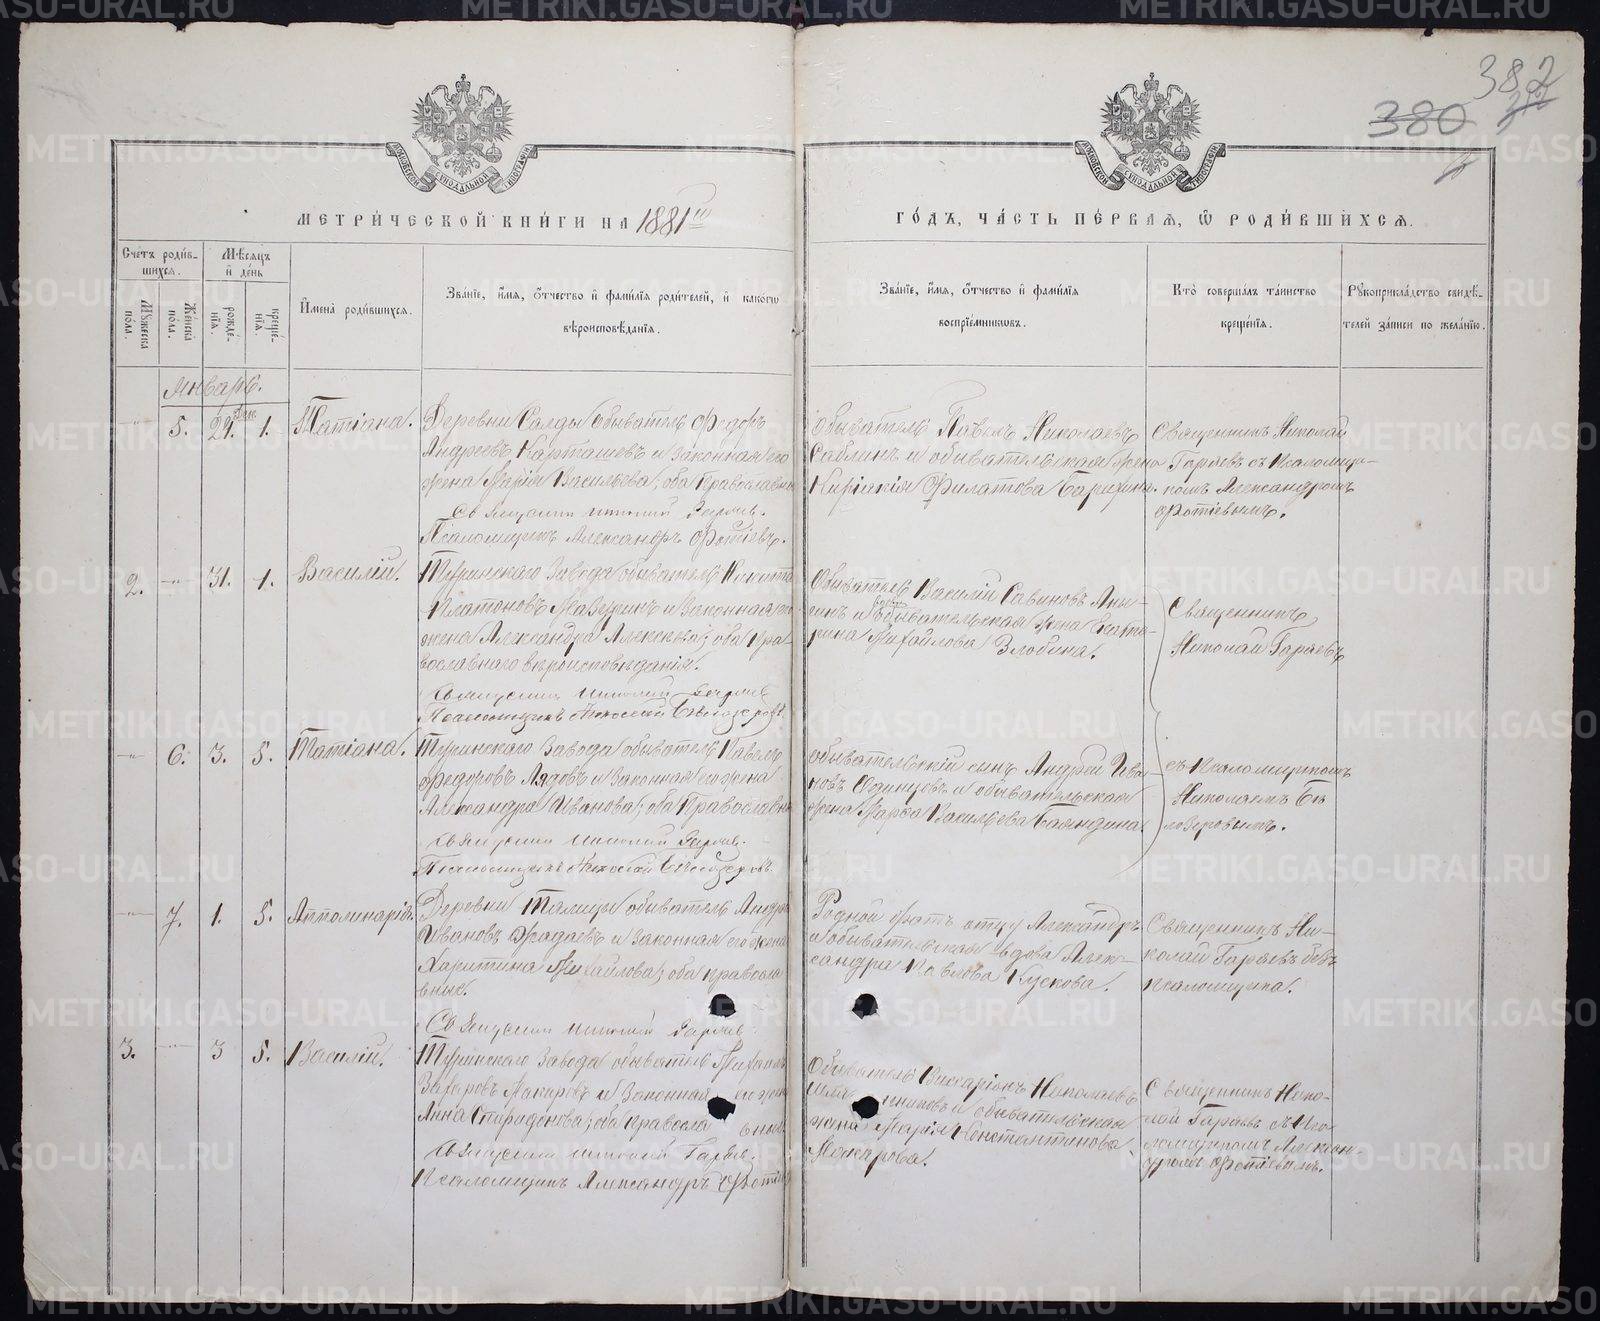 382
380
МЕТРИ́ЧЕСКОЙ КНИ́ГИ НА 1881й
ГО́ДЪ, ЧА́СТЬ ПЕ́РВАЯ, Ѿ РОДИ́ВШИХСѦ.
Сче́тъ роди́в-
шихсѧ.
Мꙋжеска по́ла.
Же́нска по́ла.
Мѣ́сѧцъ и҆ де́нь
рожде́-нїѧ.
креще́-нїѧ.
И҆мена̀ роди́вшихсѧ.
Зва́нїе, и҆́мѧ, ѻ҆́тчество и҆ фами́лїѧ роди́телей, и҆ како́гѡ
вѣроисповѣ́данїѧ.
Зва́нїе, и҆́мѧ, ѻ҆́тчество и҆ фами́лїѧ
воспрїе́мникѡвъ.
Кто̀ соверша́лъ та́инство
креще́нїѧ.
Рꙋкоприкла́дство свидѣ́-
телей за́писи по жела́нїю.
Январь.
5. 29. Дек. 1. Татіана.
Деревни Салды обыватель Ѳедоръ
Андреевъ Карташевъ и законная его
жена Марія Васильева, оба православны
Священникъ Николай Гаряев.
Псаломщикъ Александръ Фотіевъ.
Обыватель Павелъ Николаевъ
Саблинъ и обывательская жена
Киріакія Филатова
Священникъ Николай
Гаряевъ съ Псаломщи-
комъ Александромъ
Фотіевымъ.
2. 31. 1. Василій.
Туринскаго завода обыватель Никита
Платоновъ Мазуринъ и законная его
жена Александра Алексѣева, оба пра-
вославнаго вѣроисповѣданія.
Священникъ Николай Гаряев
Псаломщикъ Николай Бѣлозеровъ
Обыватель Василій Савиновъ
и обывательская жена Екате-
рина Михайлова Злобина.
Священникъ
Николай Гаряевъ
6. 3. 5. Татіана.
Туринскаго завода обыватель Павелъ
Ѳедоровъ Лядовъ и законная его жена
Александра Иванова, оба православны
Священникъ Николай Гаряев.
Псаломщикъ Николай Бѣлозеровъ.
обывательскій сынъ Андрей Ива-
новъ Одинцовъ и обывательская
жена Марѳа Васильева
съ Псаломщикомъ
Николаемъ Бѣ-
лозеровымъ.
7. 1. 5. Апполинарія.
Деревни Талицы обыватель Андрей
Ивановъ и законная его жена
Харитина Михайлова, оба правосла
вные.
Священникъ Николай Гаряев.
Родной братъ отцу Александръ
и обывательская вдова Алек-
сандра Павлова Кускова.
Священникъ Ни-
колай Гаряевъ безъ
псаломщика.
3. 3 5. Василій.
Туринскаго завода обыватель Михаилъ
Захаровъ Макаровъ и законная его жена
Анна Спиридонова, оба правосла вные
Священникъ Николай Гаряев.
Псаломщикъ Александръ Фотіев
Обыватель Виссаріонъ Николаевъ
и обывательская
жена Марія Константинова
Макарова.
Священникъ Нико-
лай Гаряевъ съ Пса-
ломщикомъ Алексан-
дромъ Фотіевымъ.
METRIKI.GASO-URAL.RU